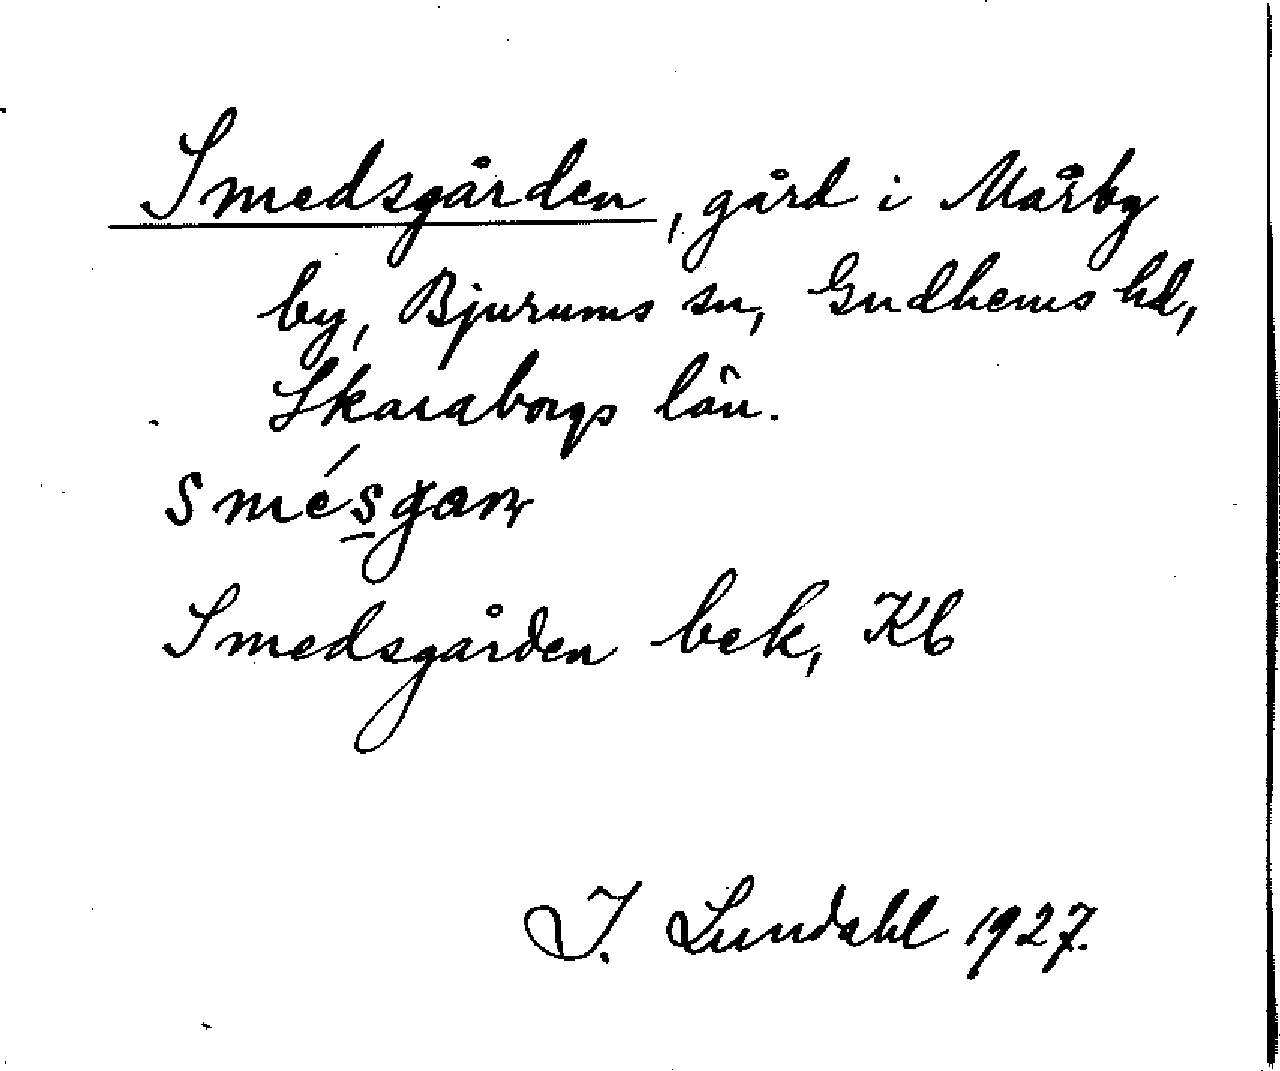 Smedsgården, gård i Mårby
by, Bjurums sn, Gudhems hd,
Skaraborgs län.
smésgan
Smedsgården bek, Kb
I. Lundahl 1927.